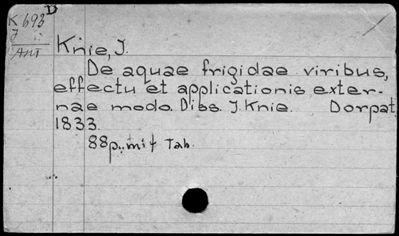 K 693 D
7
Ant
Knie, J.
De aquae frigidae viribus,
effectu et applicationis exter-
nae modo. Diss. J. Knie. Dorpat,
1833.
88p., mit Tab.